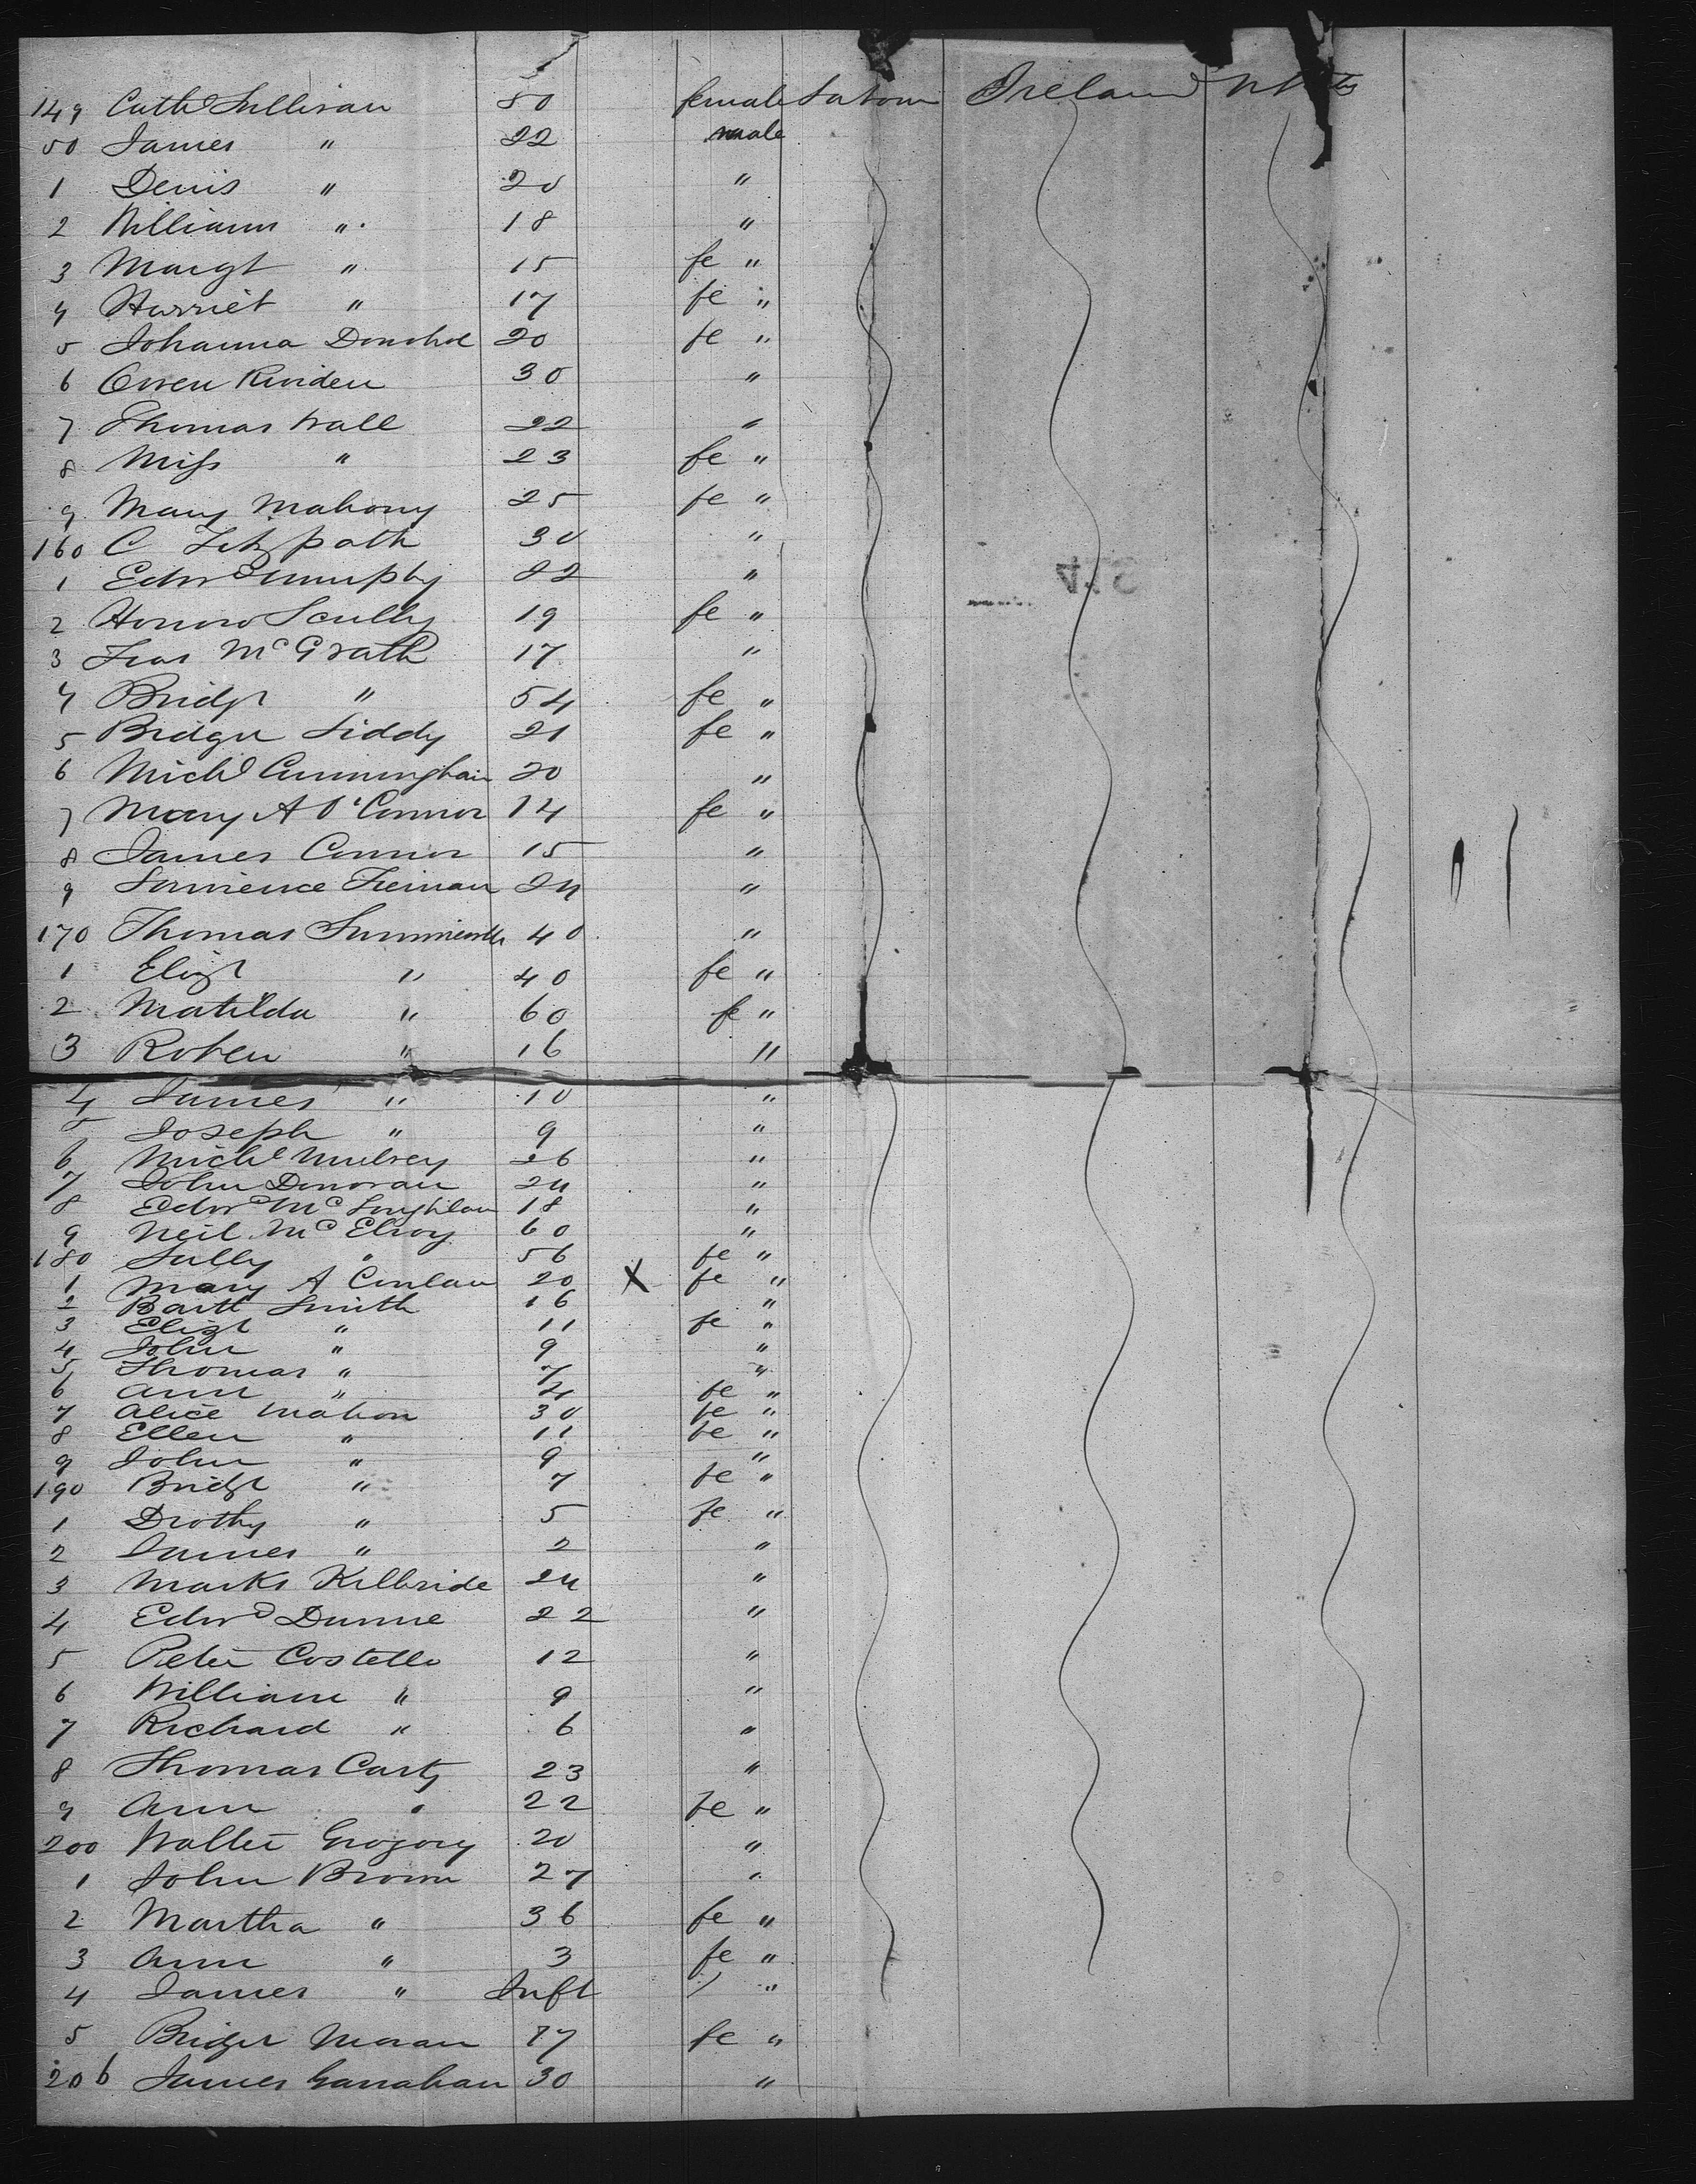 149 Cathe Sullivan 50 female Labour Ireland U States
50 James " 22 male
1 Denis " 20 "
2 William " 18 "
3 Margt " 15 fe "
4 Harriet " 17 fe "
5 Johanna Donohoe 20 fe "
6 Owen 30 "
7 Thomas Wall 22 "
8 Miss " 23 fe "
9 Mary Mahony 25 fe "
160 C Fitzpatk 30 "
1 Edwd Murphy 22 "
2 Honora Scully 19 fe "
3 McGrath 17 "
4 Bridgt " 54 fe "
5 Bridget Liddy 21 fe "
6 Michl Cunningham 20 "
7 Mary A O'Connor 14 fe "
8 James Connor 15 "
9 Lawrence 24 "
170 Thomas 40 "
1 Elizt " 40 fe "
2 Matilda " 60 fe "
3 Robert " 16 "
4 James " 10 "
5 Joseph " 9 "
6 Michl Mulvey 26 "
7 John Donovan 24 "
8 Edwd McLoughlan 18 "
9 Neil McElroy 60 "
180 Sally " 56 fe "
1 Mary A Conlan 20 X fe "
2 Bartt Smith 16 "
3 Elizt " 11 fe "
4 John " 9 "
5 Thomas " 7 "
6 Ann " 4 fe "
7 Alice Mahon 30 fe "
8 Ellen " 11 fe "
9 John " 9 "
190 Bridgt " 7 fe "
1 Drothy " 5 fe "
2 James " 2 "
3 Marks Kilbride 24 "
4 Edwd Dunne 22 "
5 Peter Costello 12 "
6 William " 9 "
7 Richard " 6 "
8 Thomas Carty 23 "
9 Ann " 22 fe "
200 Walter Grogory 20 "
1 John Brown 27 "
2 Martha " 36 fe "
3 Ann " 3 fe "
4 James " Inft "
5 Bridget Moran 17 fe "
206 James Ganahan 30 "